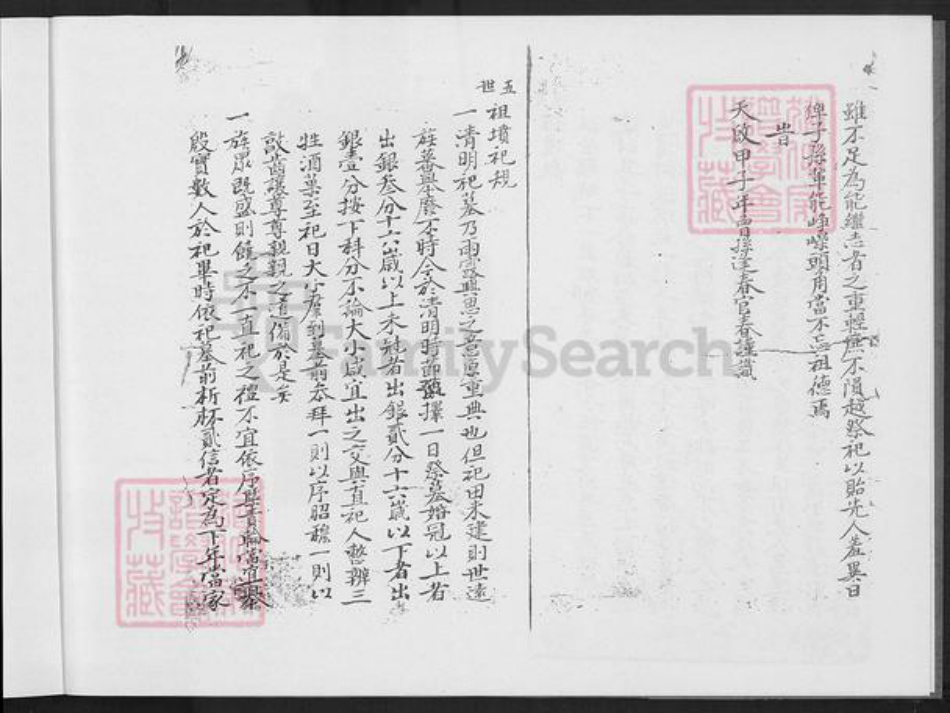 雖不足為能繼志者之重輕庶不隕越祭祀以貽先人羞異日
俾子孫輩能崢嶸頭角當不忘祖德焉
昔
天啟甲子年 孫逢春官春謹識
五世
祖墳祀規
一清明祀墓乃雨露興思之意重典也但祀田未建則世遠
族蕃舉廢不時今於清明時節擇一日祭墓婚冠以上者
出銀叁分十六歲以上未冠者出銀貳分十六歲以下者出
銀壹分按下科分不論大小咸宜出之交與直祀人整辦三
牲酒菓至祀日大小羣到墓前恭拜一則以序昭穆一則以
敬齒讓尊尊親親之道備於是矣
一族眾既盛則餕之不一直祀之禮不宜依序 輪當直
殷實數人於祀畢時依祀墓前析杯貳信者定為下年當家
FamilySearch